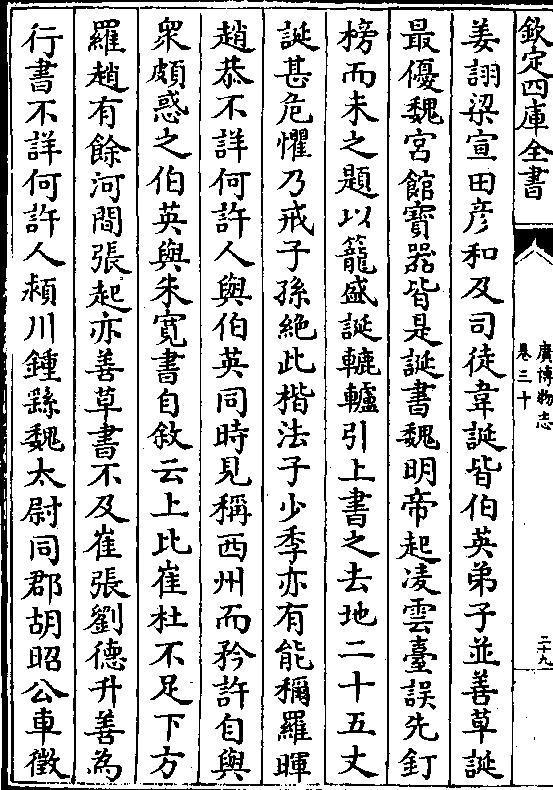 欽定四庫全書
廣博物志
卷三十
二十九
姜詡梁宣田彦和及司徒韋誕皆伯英弟子並善草誕
最優魏宮館寶器皆是誕書魏明帝起凌雲臺誤先釘
榜而未之題以籠盛誕轆轤引上書之去地二十五丈
誕甚危懼乃戒子孫絶此楷法子少季亦有能稱羅暉
趙恭不詳何許人與伯英同時見稱西州而矜許自與
衆頗惑之伯英與朱寛書自敘云上比崔杜不足下方
羅趙有餘河間張起亦善草書不及崔張劉德升善為
行書不詳何許人潁川鍾繇魏太尉同郡胡昭公車徵